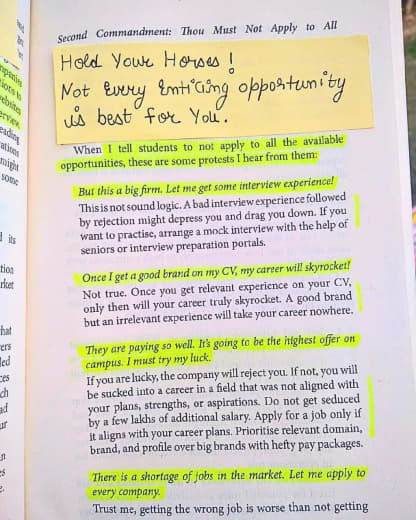 Second Commandment: Thou Must Not Apply to All
Hold Your Horses!
Not Every Enticing opportunity
is best for You.
When I tell students to not apply to all the available
opportunities, these are some protests I hear from them:
But this a big firm. Let me get some interview experience!
This is not sound logic. A bad interview experience followed
by rejection might depress you and drag you down. If you
want to practise, arrange a mock interview with the help of
seniors or interview preparation portals.
Once I get a good brand on my CV, my career will skyrocket!
Not true. Once you get relevant experience on your CV,
only then will your career truly skyrocket. A good brand
but an irrelevant experience will take your career nowhere.
They are paying so well. It's going to be the highest offer on
campus. I must try my luck.
If you are lucky, the company will reject you. If not, you will
be sucked into a career in a field that was not aligned with
your plans, strengths, or aspirations. Do not get seduced
by a few lakhs of additional salary. Apply for a job only if
it aligns with your career plans. Prioritise relevant domain,
brand, and profile over big brands with hefty pay packages.
There is a shortage of jobs in the market. Let me apply to
every company.
Trust me, getting the wrong job is worse than not getting